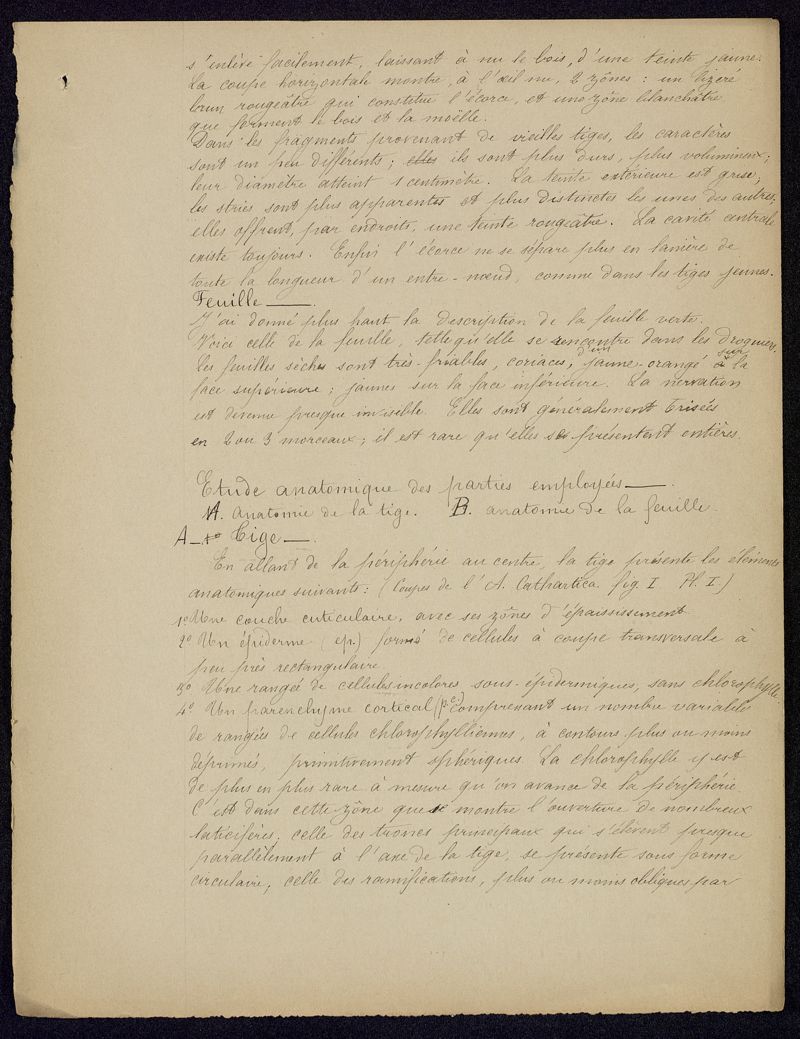 s'enlève facilement, laissant à nu le bois, d'une teinte jaune.
La coupe horizontale montre, à l'œil nu, 2 zônes : un lizeré
brun rougeâtre qui constitue l'écorce, et une zône blanchâtre
que forment le bois et la moëlle.
Dans les fragments provenant de vieilles tiges, les caractères
sont un peu différents ; elles ils sont plus durs, plus volumineux ;
leur diamètre atteint 1 centimètre. La teinte extérieure est grise ;
les stries sont plus apparentes et plus distinctes les unes des autres ;
elles offrent, par endroits, une teinte rougeâtre. La cavité centrale
existe toujours. Enfin l'écorce ne se sépare plus en lanière de
toute la longueur d'un entre-nœud, comme dans les tiges jeunes.
Feuille —.
J'ai donné plus haut la description de la feuille verte.
Voici celle de la feuille, telle qu'elle se rencontre dans les droguiers.
Les feuilles sèches sont très-friables, coriaces, d'un jaune-orangé à sur la
face supérieure ; jaunes sur la face inférieure. La nervation
est devenue presque invisible. Elles sont généralement brisées
en 2 ou 3 morceaux ; il est rare qu'elles se présentent entières.
Etude anatomique des parties employées —.
A. Anatomie de la tige. B. anatomie de la feuille.
A — 1º Tige —.
En allant de la périphérie au centre, la tige présente les éléments
anatomiques suivants : (Coupes de l'A. Cathartica fig. I Pl. I)
1º Une couche cuticulaire, avec ses zônes d'épaississement
2º Un épiderme (ep.) formé de cellules à coupe transversale à
peu près rectangulaire.
3º Une rangée de cellules incolores, sous-épidermiques, sans chlorophylle.
4º Un parenchyme cortical (p.c.) comprenant un nombre variable
de rangées de cellules chlorophylliennes, à contours plus ou moins
déprimés, primitivement sphériques. La chlorophylle y est
de plus en plus rare à mesure qu'on avance de la périphérie.
C'est dans cette zône que se montre l'ouverture de nombreux
laticifères. celle des troncs principaux qui s'élèvent presque
parallèlement à l'axe de la tige, se présente sous forme
circulaire, celle des ramifications, plus ou moins obliques par